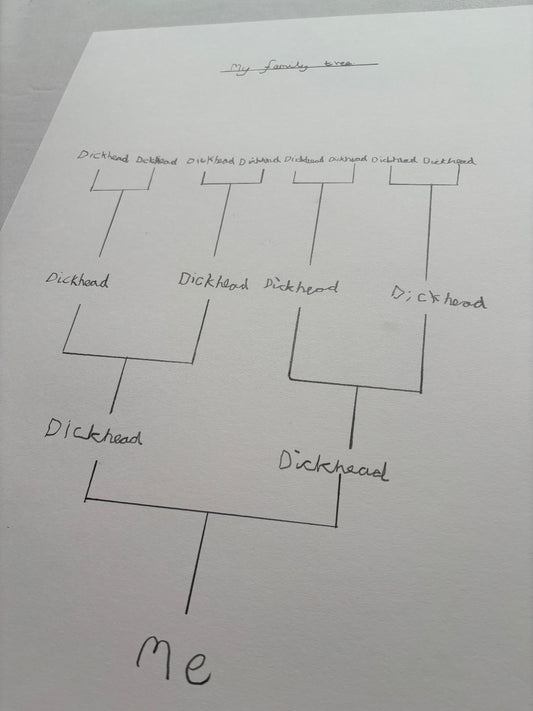 My family tree
Dickhead Dickhead Dickhead Dickhead Dickhead Dickhead Dickhead Dickhead
Dickhead Dickhead Dickhead Dickhead
Dickhead Dickhead
Me